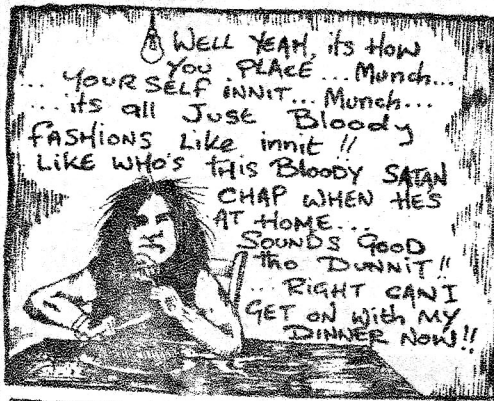 WELL YEAH, its HOW
YOU PLACE... Munch...
... YOURSELF iNNiT... Munch...
... its all Just Bloody
FASHiONS Like innit !!
LiKE WHO'S THiS Bloody SATAN
CHAP WHEN HE'S
AT HOME...
SOUNDS GOOD
tho DUNNiT !!
... RiGHT CAN I
GET ON With MY
DiNNER NOW !!